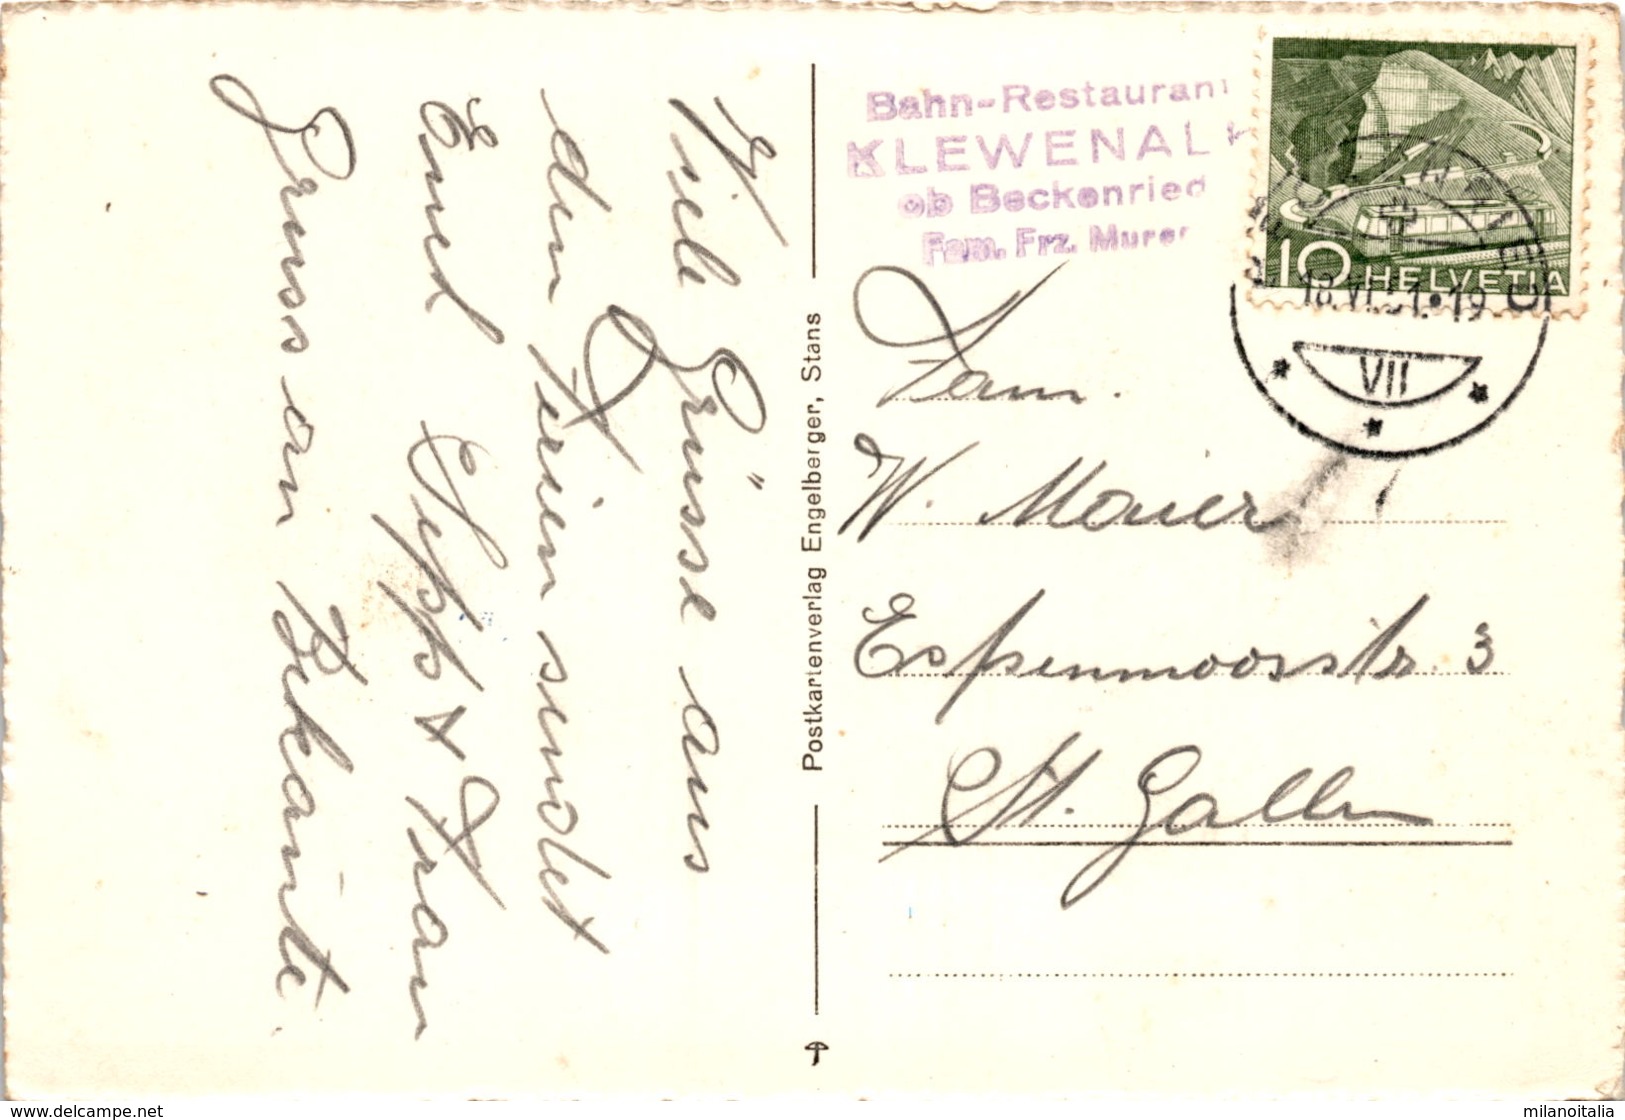 Viele Grüsse aus
den Ferien sendet
Euch Sepp & Frau
Gruss an Bekannte
Postkartenverlag Engelberger, Stans
Bahn-Restaurant
KLEWENALP
ob Beckenried
Fam. Frz. Murer
10 HELVETIA
18.VI.51.19
VII
Fam.
W. Mauer
Espenmoosstr. 3
St. Gallen
www.delcampe.net
milanoitalia